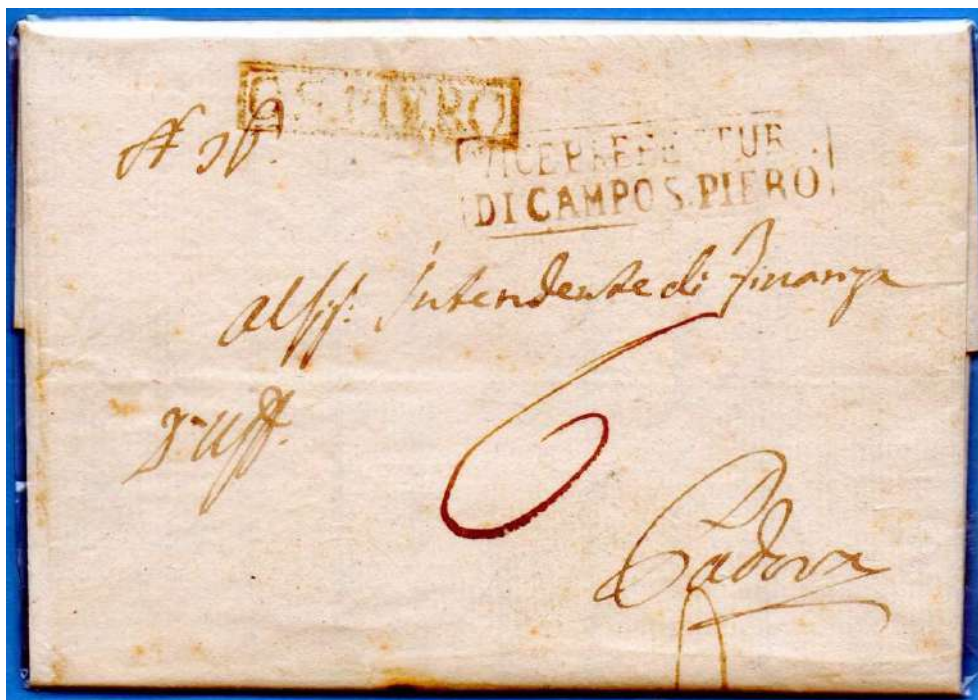 C. S. PIERO
VICE PREFETTUR
DI CAMPO S. PIERO
Intendente di Finanza
6
Padova